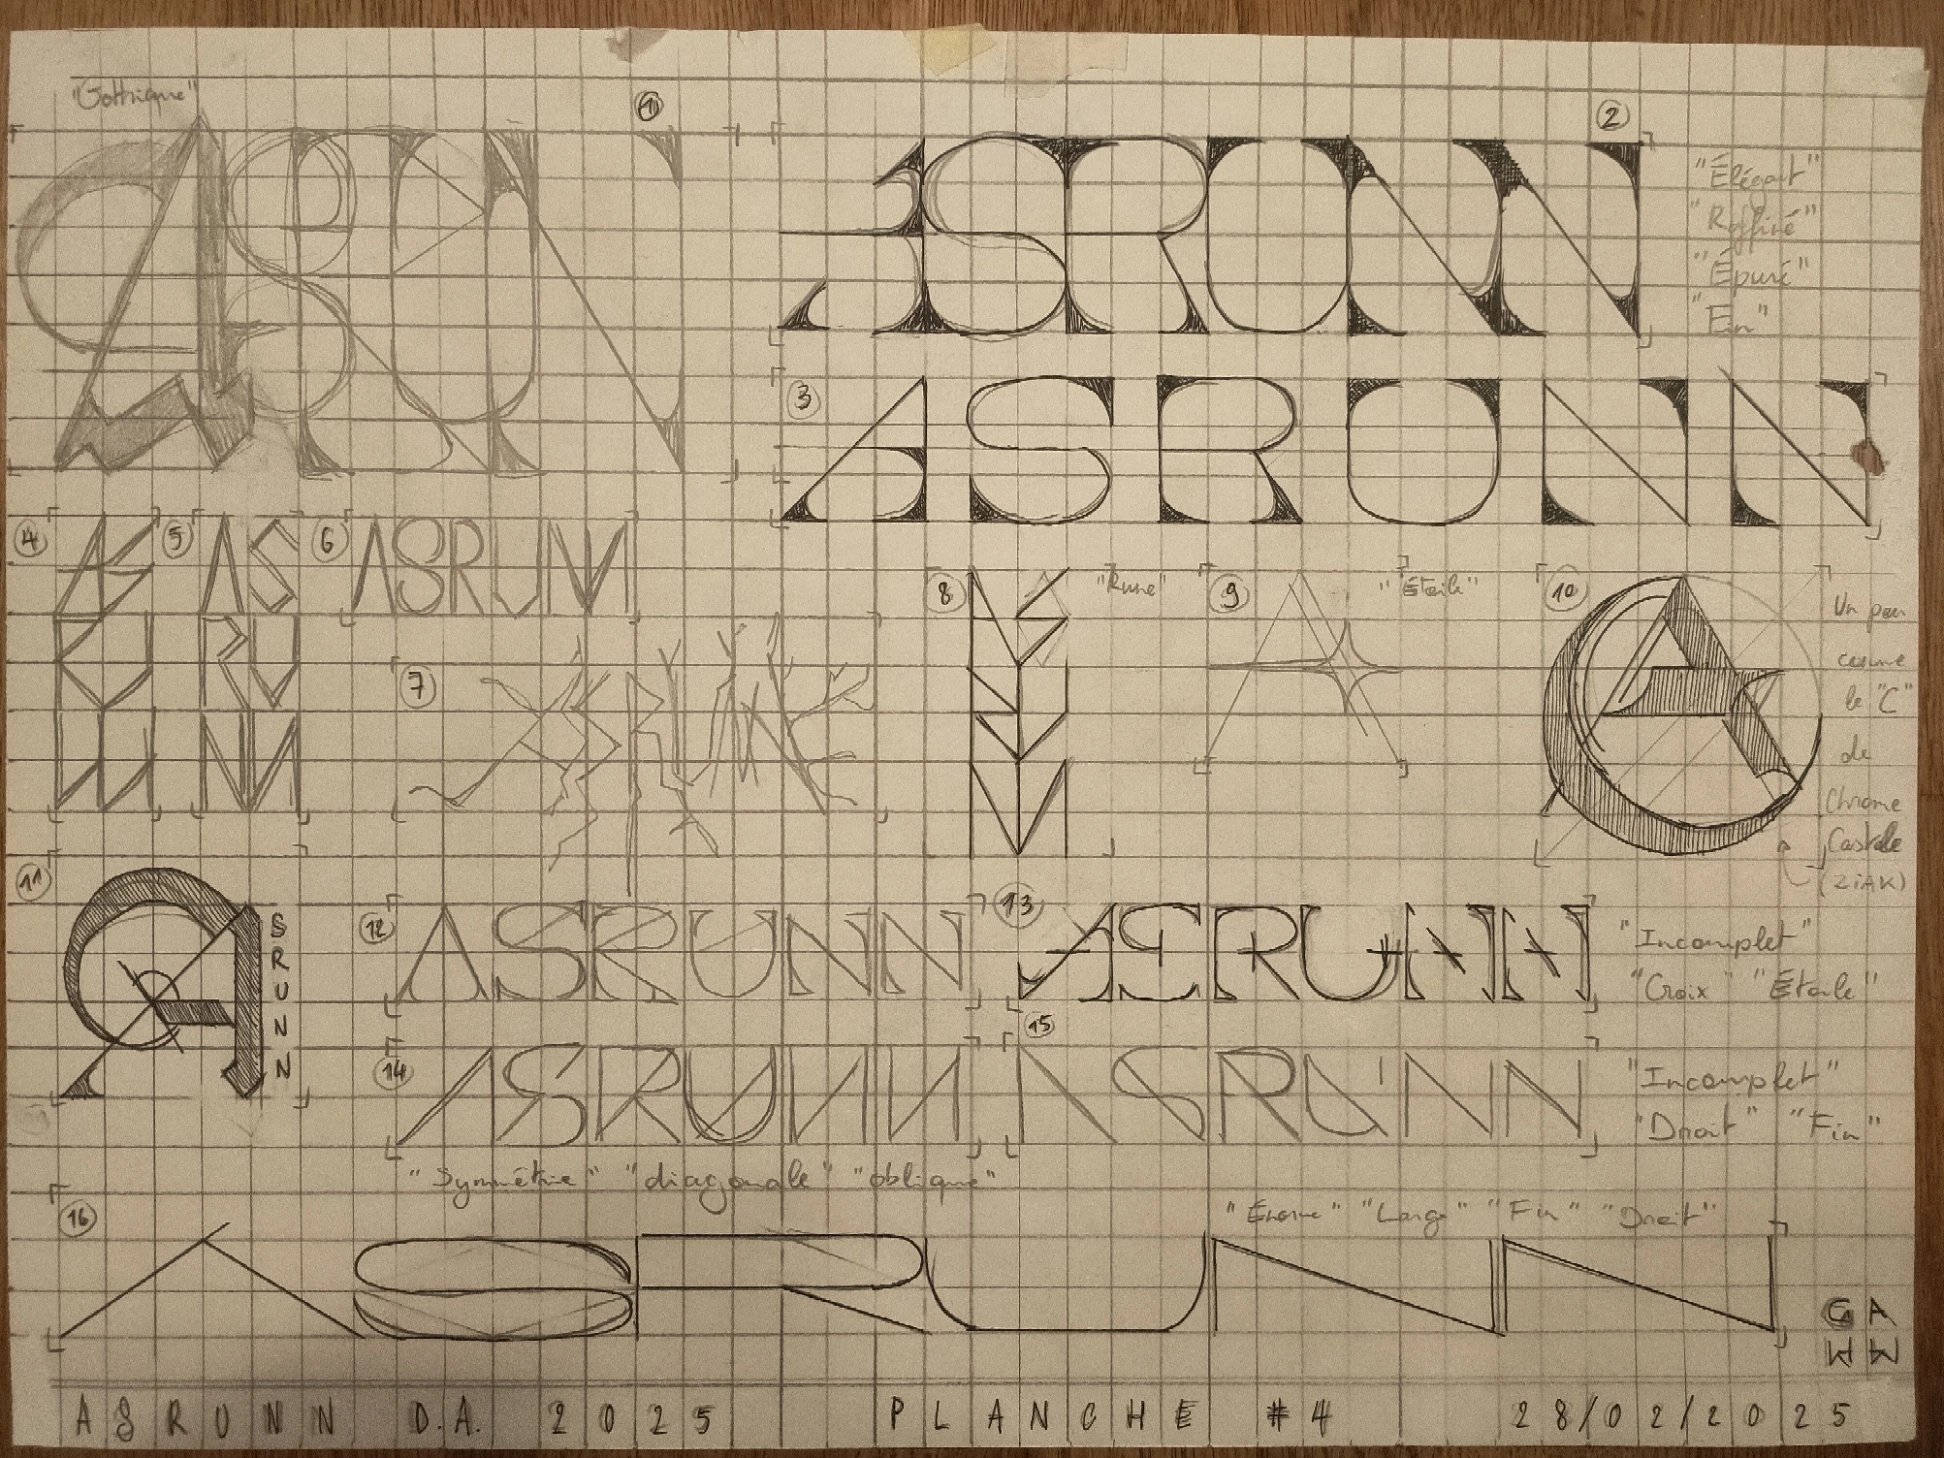 "Gothique"
1
ASRUN
2
ASRUNN
"Élégant"
"Raffiné"
"Épuré"
"Fin"
3
ASRUNN
4
AS
RU
NN
5
AS
RU
NN
6
ASRUNN
7
ASRUNN
8
"Rune"
9
"Étoile"
A
10
A
Un peu
comme
le "C"
de
Chrome
Castle
(ZIAK)
11
A
S
R
U
N
N
12
ASRUNN
13
ASRUNN
"Incomplet"
"Croix" "Étoile"
14
ASRUNN
15
ASRUNN
"Incomplet"
"Droit" "Fin"
"Symétrie" "diagonale" "oblique"
16
"Énorme" "Large" "Fin" "Droit"
ASRUNN
ASRUNN D.A. 2025 PLANCHE #4 28/02/2025